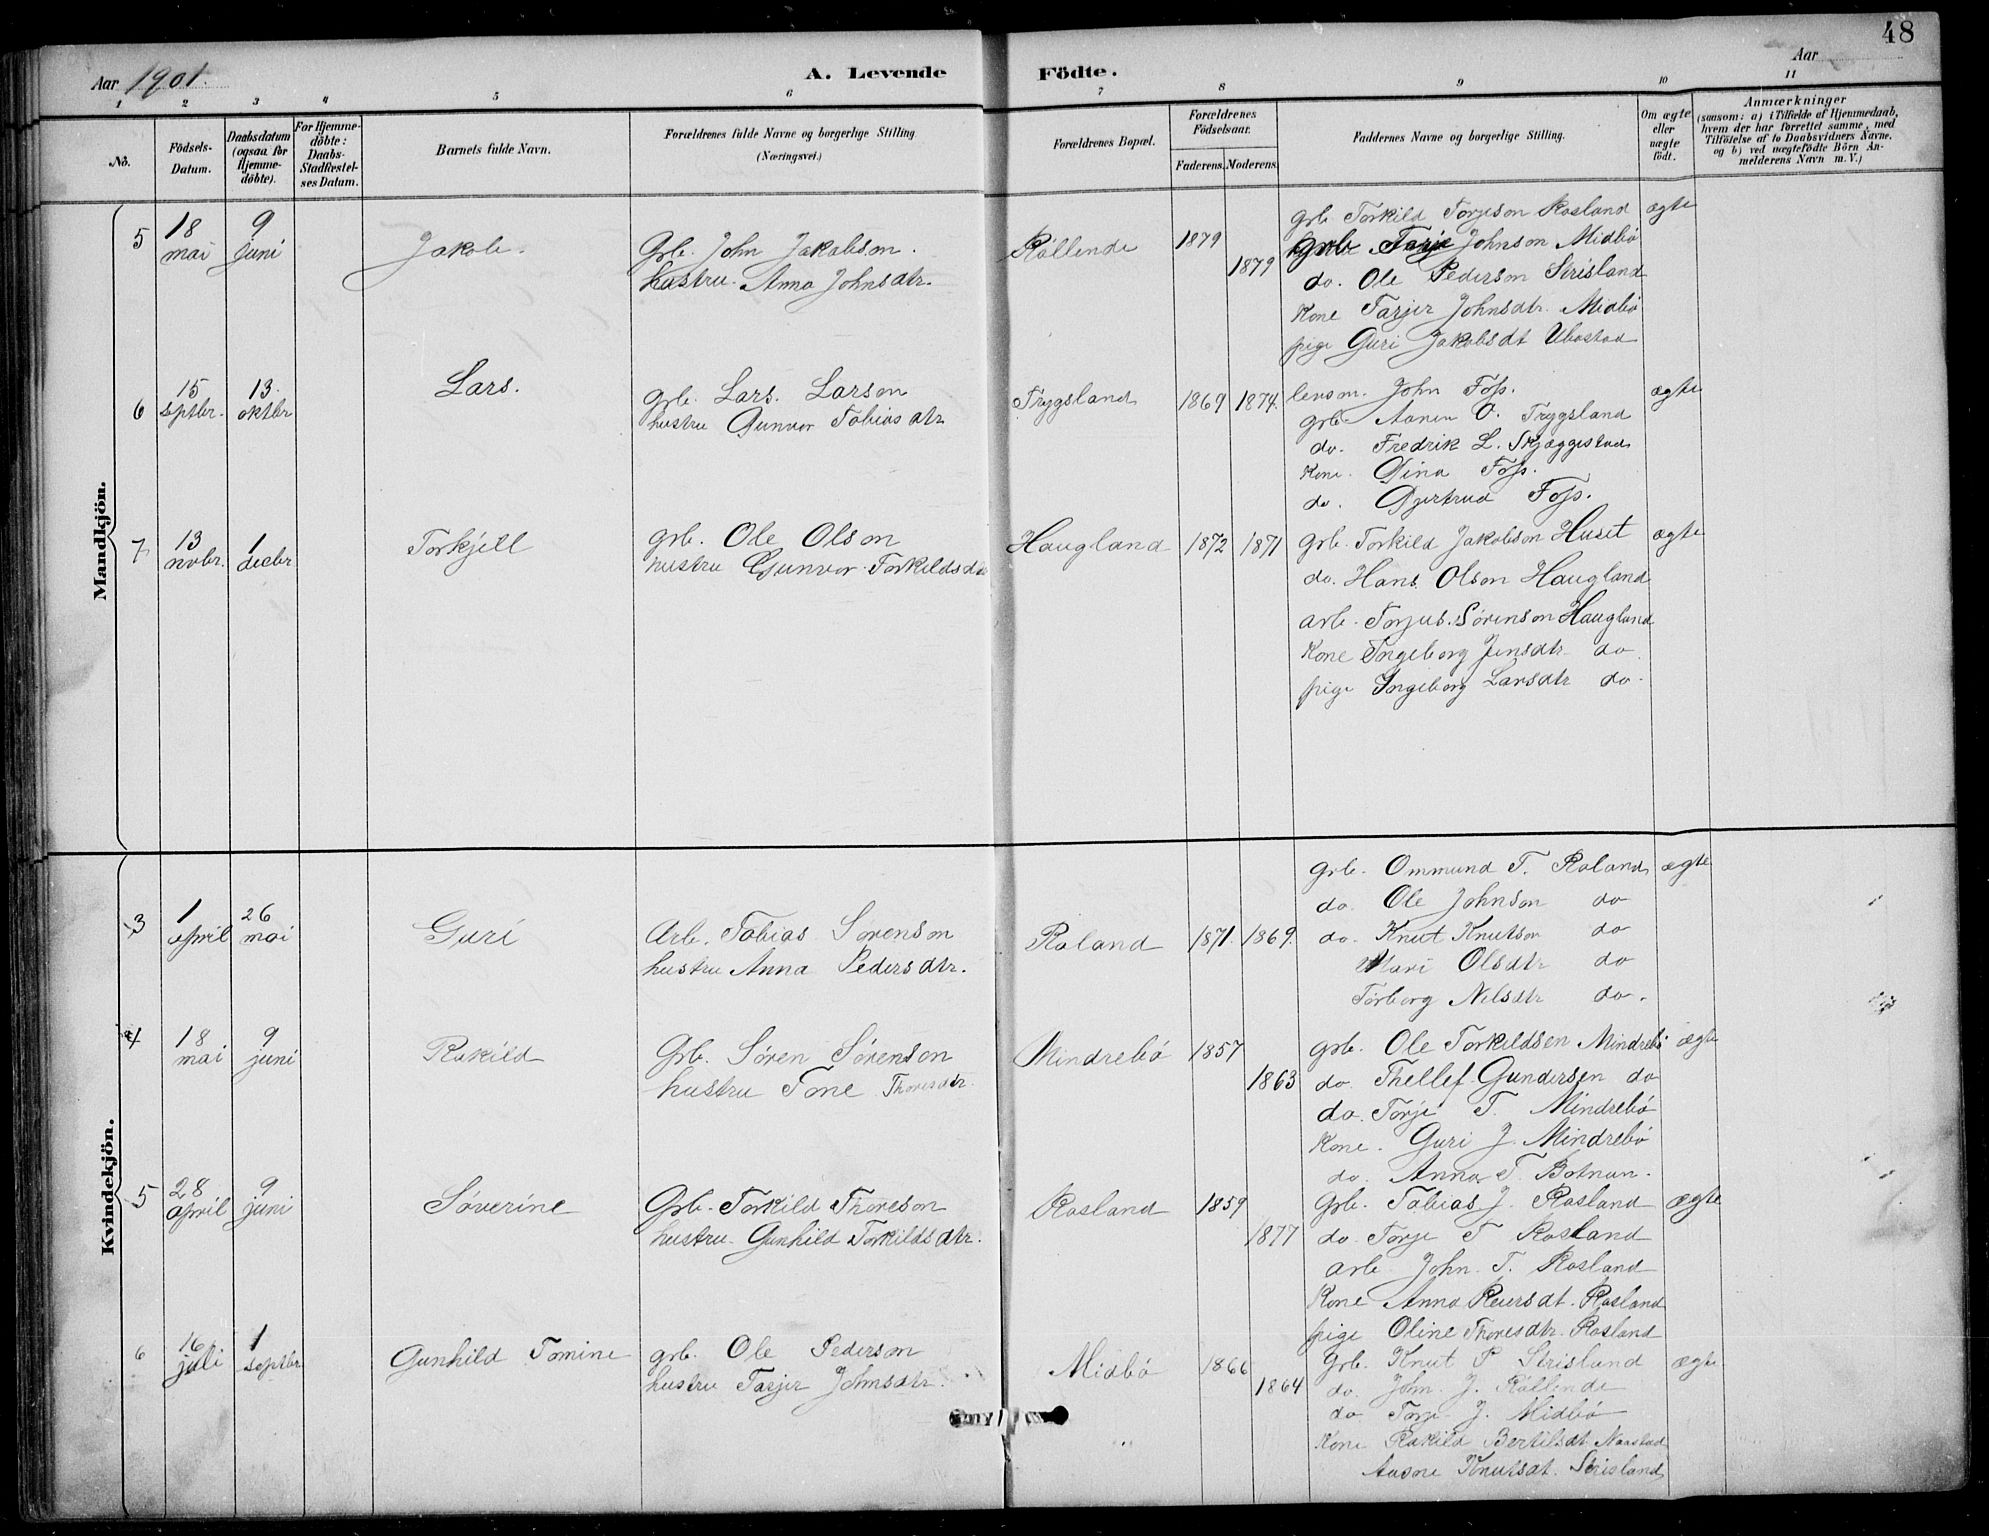 48
Aar 1901.
A. Levende Födte.
Aar
1 2 3 4 5 6 7 8 9 10 11
No.
Födsels-Datum.
Daabsdatum (ogsaa for Hjemme-döbte).
For Hjemme-döbte: Daabs-Stadfæstel-ses Datum.
Barnets fulde Navn.
Forældrenes fulde Navne og borgerlige Stilling (Næringsvei.)
Forældrenes Bopæl.
Forældrenes Födselsaar.
Faderens. Moderens.
Faddernes Navne og borgerlige Stilling.
Om ægte eller uægte födt.
Anmærkninger
(saasom: a) i Tilfælde af Hjemmedaab, hvem der har forrettet samme, med Tilföielse af to Daabsvidners Navne, og b) ved uægtefödte Börn An-melderens Navn m. V.)
Mandkjön.
5 18 mai 9 juni Jakob. Grb. John Jakobson. Röllende 1879 1879 ægte
hustru. Anna Johnsdtr.
grb. Torkild Torjeson Rosland
grb. Torje Johnson Midbö
do. Ole Pederson Strisland
Kone Tarjer Johnsdtr. Midbö
pige Guri Jakobsdt Ubostad
6 15 septbr. 13 oktbr Lars. grb. Lars. Larson Trygsland 1869 1874. ægte
hustru Gunvor Tobiasdtr
lensm. John Foss.
grb. Aanen O. Trygsland
do. Fredrik L. Skjæggestad
Kone. Gina Foss.
do. Gjertrud Foss.
7 13 novbr. 1 decbr Torkjell grb. Ole Olson Haugland 1872 1871 ægte
hustru Gunvor Torkildsdtr
grb. Torkild Jakobson Huset
do. Hans Olson Haugland
arb. Torjus Sörenson Haugland
Kone Ingeborg Jensdtr do
pige Ingeborg Larsdtr do.
Kvindekjön.
3 1 april 26 mai Guri Arb. Tobias Sörenson Roland 1871. 1869. ægte
hustru Anna Pedersdtr.
grb. Ommund T. Roland
do. Ole Johnson do
do. Knut Knutson do
Mari Olsdtr do
Torborg Nilsdtr do.
4 18 mai 9 juni Rakild Grb. Sören Sörenson Mindrebö 1857 1863 ægte
hustru Tone Thoresdtr.
grb. Ole Torkildsen Mindrebö
do. Thellef Gundersen do
do. Torje T. Mindrebö
Kone. Guri J. Mindrebö
do. Anna T. Botnan.
5 28 april 9 juni Söverine Grb. Torkild Thoreson Rosland 1859 1877 ægte
hustru. Gunhild Torkildsdtr.
Grb. Tobias J. Rosland
do Torje T Rosland
arb John. T. Rosland
Kone Anna Reiersdt. Rosland
pige Oline Thoresdtr. Rosland
6 16 juli 1 septbr Gunhild Tomine grb. Ole Pederson Midbö 1866 1864 ægte
hustru Tarjer Johnsdtr.
Grb. Knut P Strisland
do. John J. Röllende
do Torje J. Midbö
Kone Rakild Bertilsdt Naastad
Knutsdt. Strisland